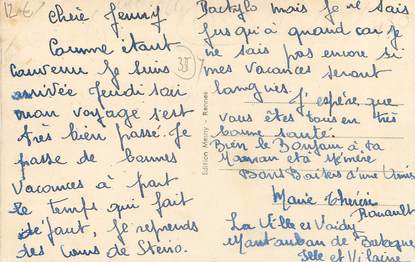 12€
Chère Jenny
Comme étant
convenu Je suis
arrivée Jeudi soir
mon voyage s'est
très bien passé. Je
passe de bonnes
vacances à part
le temps qui fait
défaut, Je reprends
des cours de Steno.
35
Edition Mesny - Rennes
Dactylo mais je ne sais
jusqu'à quand car je
ne sais pas encore si
mes vacances seront
longues.
J'espère que
vous êtes tous en très
bonne santé.
Bien le Bonjour à ta
Maman et à ta mère
Bons Baisers d'une Amie
Marie Thérèse
Renault
La Ville ès Vaidy
Montauban de Bretagne
Ille et Vilaine